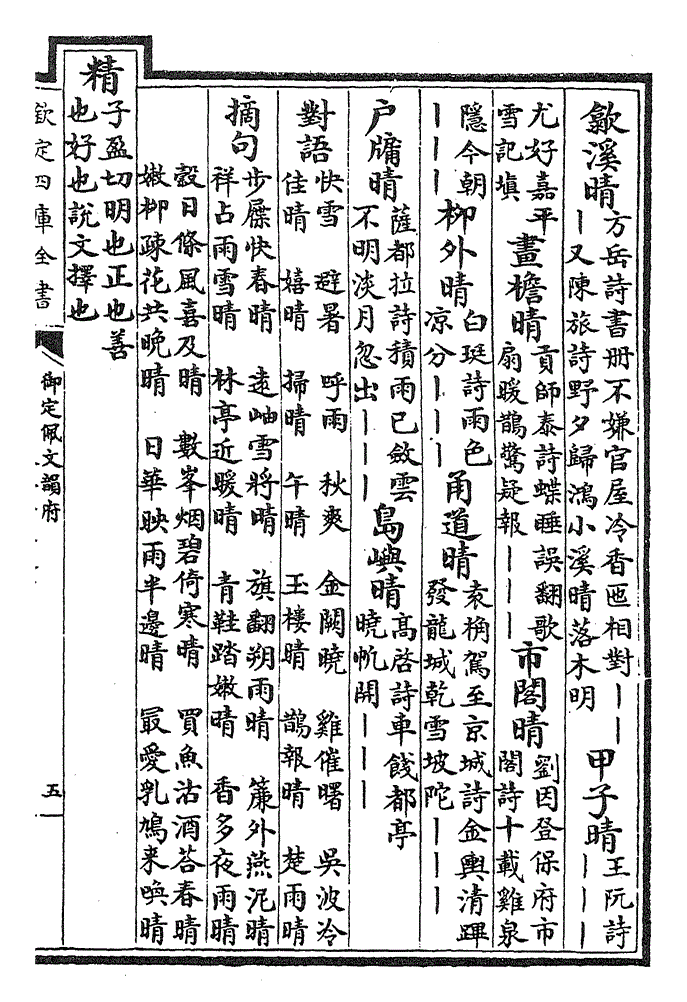 歙溪晴
方岳詩書册不嫌官屋冷香匜相對丨丨
丨又陳旅詩野夕歸鴻小溪晴落木明
甲子晴
王阮詩
丨丨丨
尤好嘉平
雪記塡
畫檐晴
貢師泰詩蝶睡誤翻歌
扇暖鵲驚疑報丨丨丨
市閣晴
劉因登保府市
閣詩十載雞泉
隱今朝
丨丨丨
柳外晴
白珽詩雨色
凉分丨丨丨
甬道晴
袁桷駕至京城詩金輿清蹕
發龍城乾雪坡陀丨丨丨
户牖晴
薩都拉詩積雨已斂雲
不明淡月忽出丨丨丨
島嶼晴
高啓詩車餞都亭
曉帆開丨丨丨
對語
快雪 避暑 呼雨 秋爽 金闕曉 雞催曙 吳波冷
佳晴 嬉晴 掃晴 午晴 玉樓晴 鵲報晴 楚雨晴
摘句
步屧快春晴 遠岫雪將晴 旗翻朔雨晴 簾外燕泥晴
祥占雨雪晴 林亭近暖晴 青鞋踏嫩晴 香多夜雨晴
穀日條風喜及晴 數峯烟碧倚寒晴 買魚沽酒答春晴
嫩柳疎花共晚晴 日華映雨半邊晴 最愛乳鳩来喚晴
精
子盈切明也正也善
也好也說文擇也
欽定四庫全書
御定佩文韻府
五